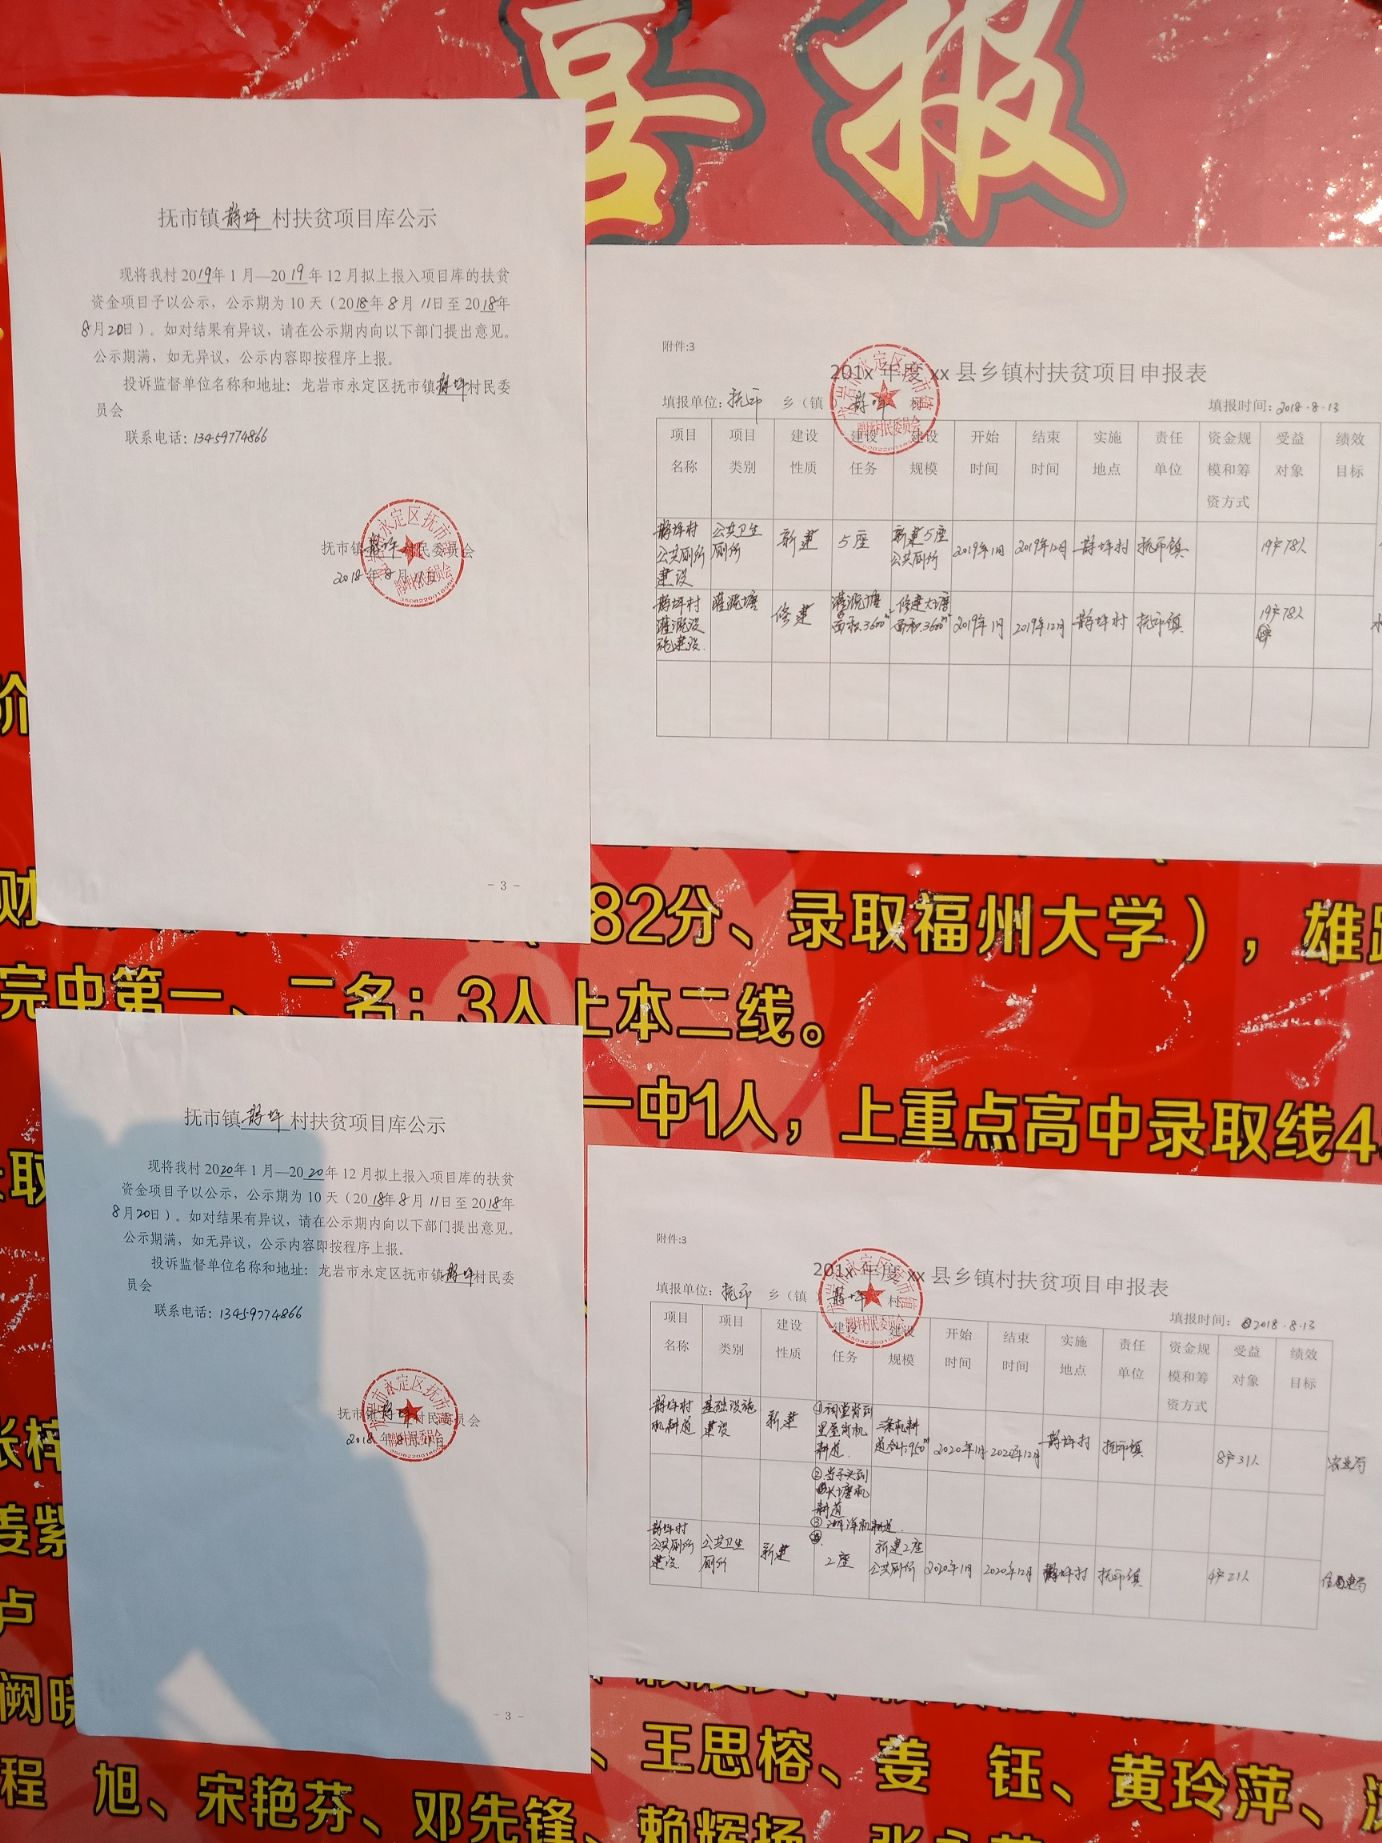 喜报
抚市镇鹊坪村扶贫项目库公示
现将我村2019年1月—2019年12月拟上报入项目库的扶贫
资金项目予以公示，公示期为10天（2018年8月11日至2018年
8月20日）。如对结果有异议，请在公示期内向以下部门提出意见。
公示期满，如无异议，公示内容即按程序上报。
投诉监督单位名称和地址：龙岩市永定区抚市镇鹊坪村民委
员会
联系电话：13459774866
抚市镇鹊坪村民委员会
2018年8月11日
- 3 -
附件:3
201x 年度 xx 县乡镇村扶贫项目申报表
填报单位：抚市 乡（镇）鹊坪 村 填报时间：2018.8.13
项目名称 项目类别 建设性质 建设任务 建设规模 开始时间 结束时间 实施地点 责任单位 资金规模和筹资方式 受益对象 绩效目标
鹊坪村公共厕所建设 公共卫生厕所 新建 5座 新建5座公共厕所 2019年1月 2019年12月 鹊坪村 抚市镇 19户78人
鹊坪村灌溉设施建设 灌溉塘 修建 灌溉塘面积3600㎡ 修建大塘面积3600㎡ 2019年1月 2019年12月 鹊坪村 抚市镇 19户78人
价
财
82分、录取福州大学），雄踞
完中第一、二名；3人上本二线。
一中1人，上重点高中录取线4
取
抚市镇鹊坪村扶贫项目库公示
现将我村2020年1月—2020年12月拟上报入项目库的扶贫
资金项目予以公示，公示期为10天（2018年8月11日至2018年
8月20日）。如对结果有异议，请在公示期内向以下部门提出意见。
公示期满，如无异议，公示内容即按程序上报。
投诉监督单位名称和地址：龙岩市永定区抚市镇鹊坪村民委
员会
联系电话：13459774866
抚市镇鹊坪村民委员会
2018年8月11日
- 3 -
附件:3
201x 年度 xx 县乡镇村扶贫项目申报表
填报单位：抚市 乡（镇）鹊坪 村 填报时间：2018.8.13
项目名称 项目类别 建设性质 建设任务 建设规模 开始时间 结束时间 实施地点 责任单位 资金规模和筹资方式 受益对象 绩效目标
鹊坪村机耕道 基础设施建设 新建 三条机耕道 2020年1月 2020年12月 鹊坪村 抚市镇 8户31人 农业局
鹊坪村公共厕所建设 公共卫生厕所 新建 2座 新建2座公共厕所 2020年1月 2020年12月 鹊坪村 抚市镇 4户21人
张梓
姜紫
卢
阙晓
程 旭、宋艳芬、邓先锋、赖辉扬
王思榕、姜 钰、黄玲萍、